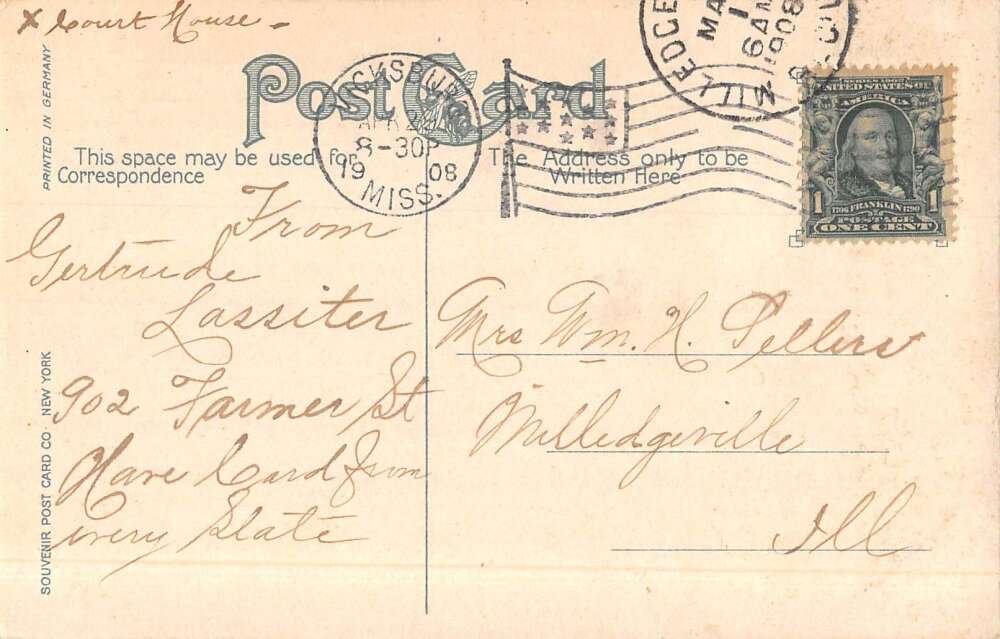 x Court House -
Post Card
PRINTED IN GERMANY
This space may be used for
Correspondence
The Address only to be
Written Here
VICKSBURG
APR
8-30P
19 08
MISS.
MILLEDGE
MA
1
6 AM
1908
SERIES 1902
UNITED STATES OF
AMERICA
1 1706 FRANKLIN 1790 1
POSTAGE
ONE CENT
From
Gertrude
Lassiter
902 Farmer St
Have Card from
every State
Mrs Wm. H. Sellers
Milledgeville
Ill
SOUVENIR POST CARD CO. NEW YORK